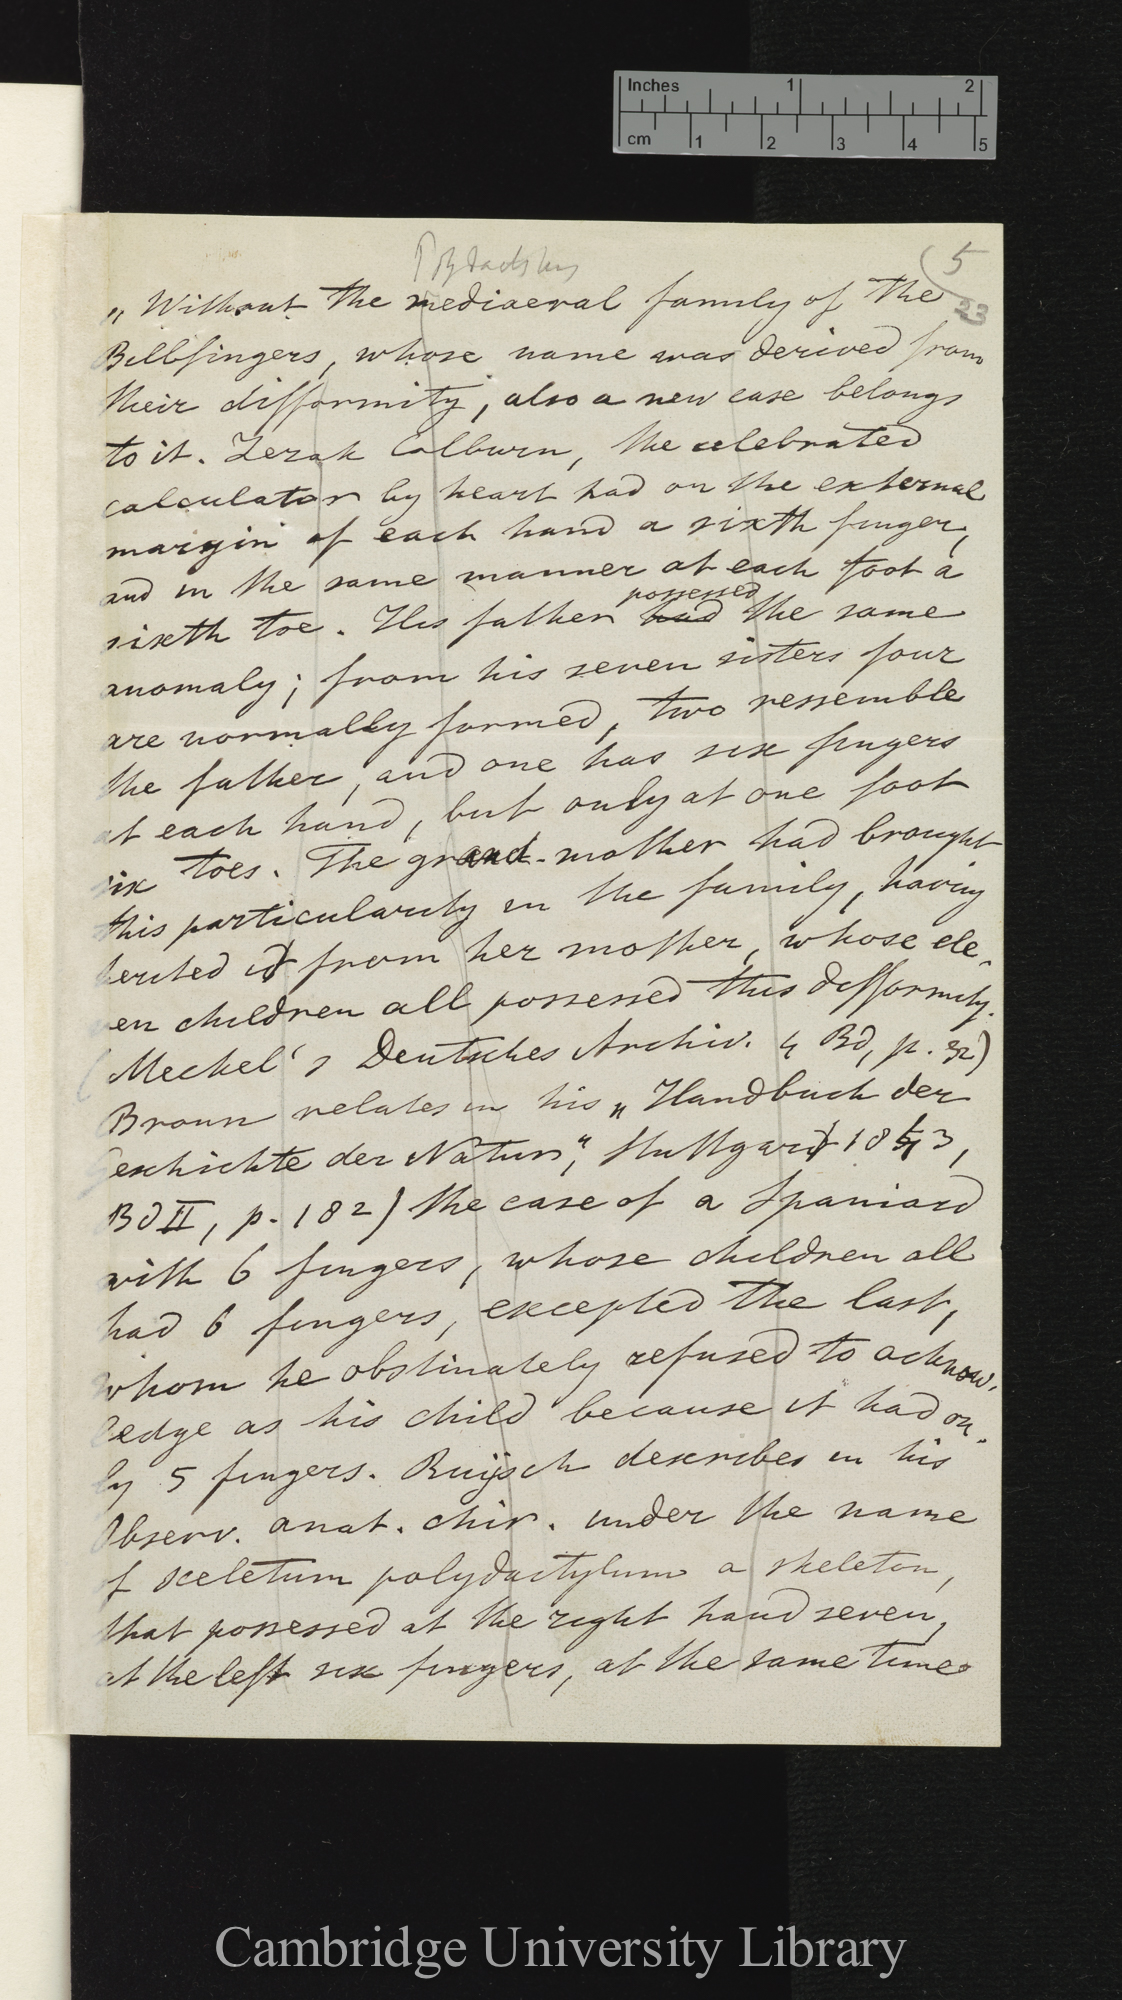 Inches 1 2
cm 1 2 3 4 5
Polydactylus
(5
23
„ Without the mediaeval family of the
Billfingers, whose name was derived from
their difformity, also a new case belongs
to it. Zerah Colburn, the celebrated
calculator by heart had on the external
margin of each hand a sixth finger,
and in the same manner at each foot a
possessed
sixth toe. His father had the same
anomaly; from his seven sisters four
are normally formed, two ressemble
the father, and one has six fingers
at each hand, but only at one foot
six toes. The grand-mother had brought
this particularity in the family, having
herited it from her mother, whose ele-
ven children all possessed this difformity.
(Meckel's Deutsches Archiv. 4 Bd, p. 32)
Bronn relates in his „ Handbuch der
Geschichte der Natur", Stuttgart 1843,
Bd II, p. 182) the case of a Spaniard
with 6 fingers, whose children all
had 6 fingers, excepted the last,
whom he obstinately refused to acknow-
ledge as his child because it had on-
ly 5 fingers. Ruijsch describes in his
Observ. anat. chir. under the name
of sceletum polydactylum a skeleton,
that possessed at the right hand seven,
at the left six fingers, at the same time
Cambridge University Library